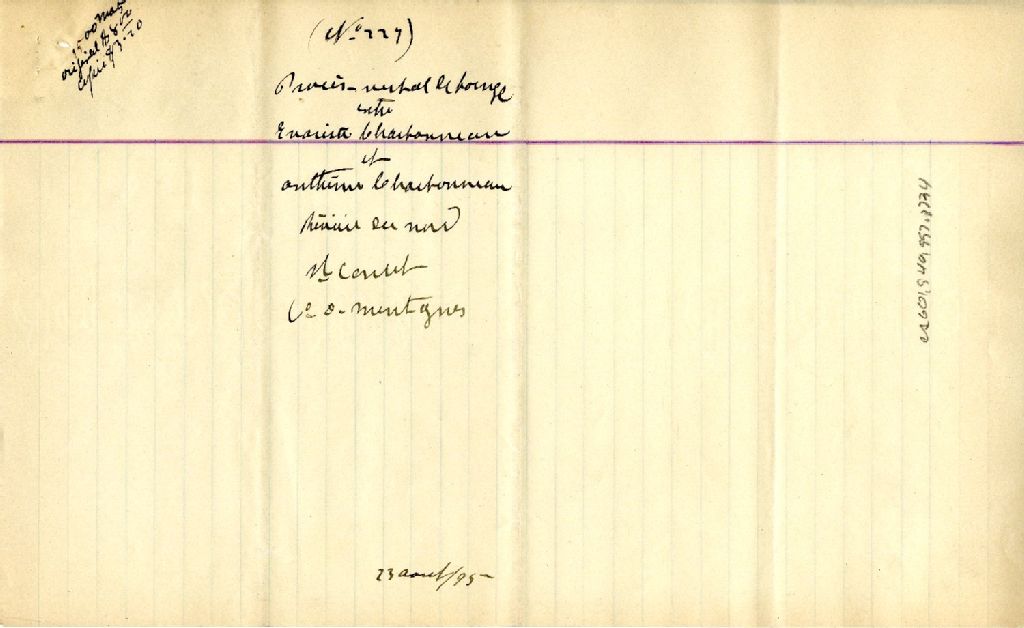 1500 Mat
original $8.00
copie $3.20
(No 227)
Procès-verbal de bornge
entre
Evariste Charbonneau
et
anthime Charbonneau
Rivière du nord
St Canut
Ce 2-montagnes
23 aout/95-